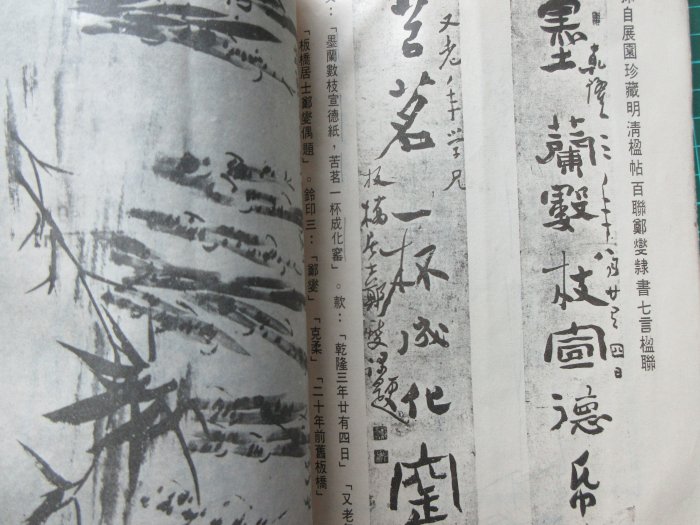 自展園珍藏明清楹帖百聯鄭燮隸書七言楹聯
乾隆三年八月廿有四日
墨蘭數枝宣德帋
又老年学兄
苦茗一杯成化窑
板橋居士鄭燮偶題
：「墨蘭數枝宣德紙，苦茗一杯成化窰」。款：「乾隆三年廿有四日」「又老
「板橋居士鄭燮偶題」。鈐印三：「鄭燮」「克柔」「二十年前舊板橋」